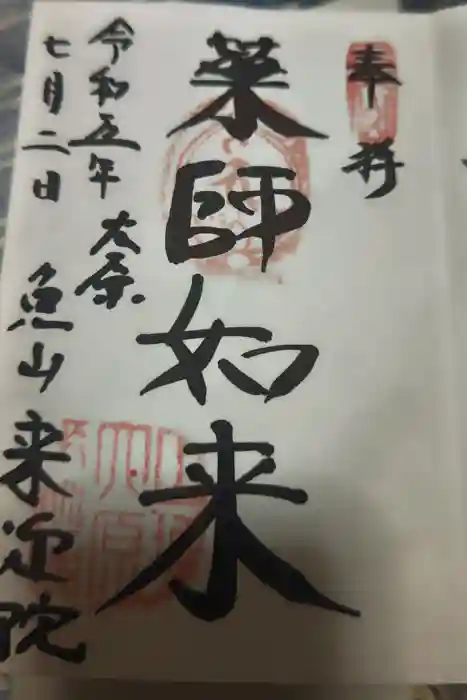 奉拝
薬師如来
令和五年 大原
七月二日 魚山 来迎院